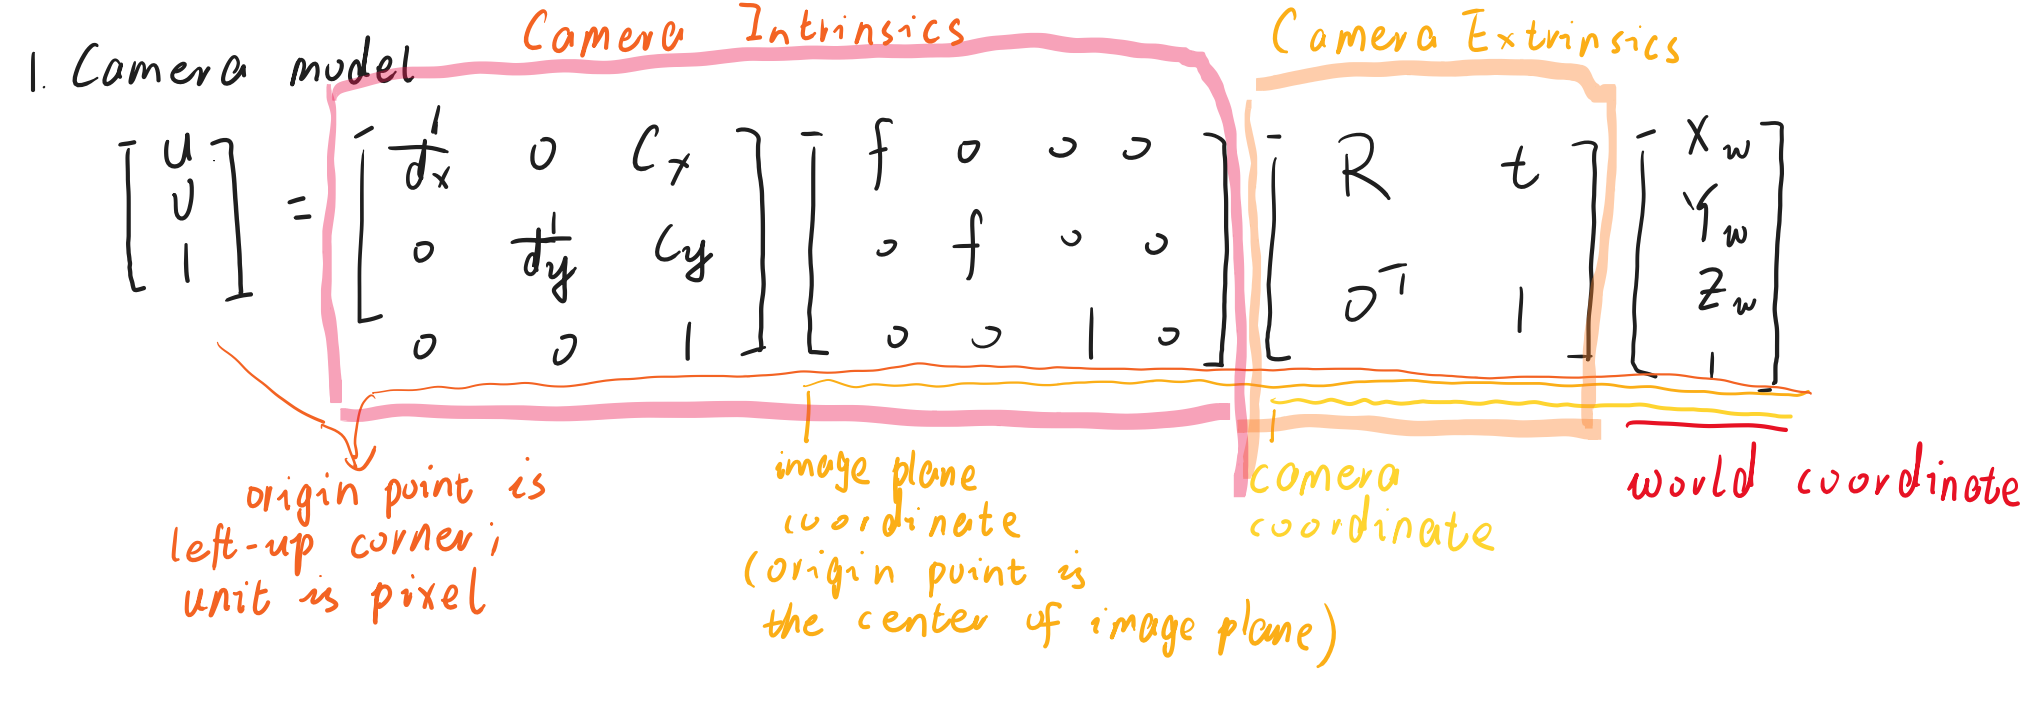 Camera Intrinsics
Camera Extrinsics
1. Camera model
[u v 1] = [1/dx 0 Cx; 0 1/dy Cy; 0 0 1] [f 0 0 0; 0 f 0 0; 0 0 1 0] [R t; 0ᵀ 1] [Xw Yw Zw 1]
origin point is
left-up corner;
unit is pixel
image plane
coordinate
(origin point is
the center of image plane)
camera
coordinate
world coordinate